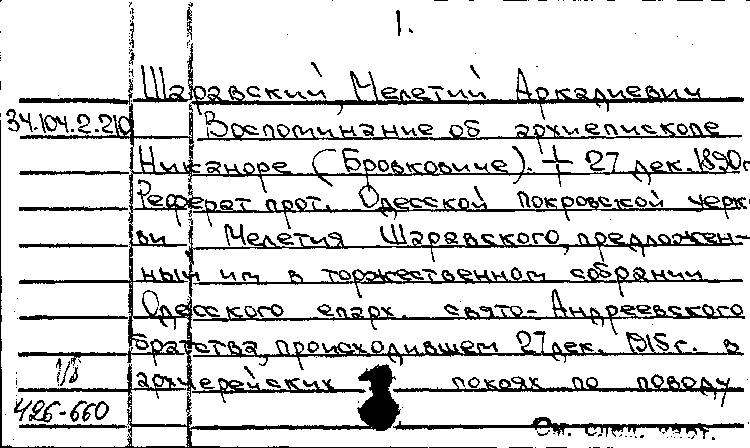 1.
Шаравский, Мелетий Аркадиевич
34.104.2.210 Воспоминание об архиепископе
Никаноре (Бровковиче). † 27 дек. 1890г
Реферат прот. Одесской покровской церк-
ви Мелетия Шаравского, предложен-
ный им в торжественном собрании
Одесского епарх. свято-Андреевского
братства, происходившем 27 дек. 1915г. в
1/8 архиерейских покоях по поводу
426-660
См. след. карт.